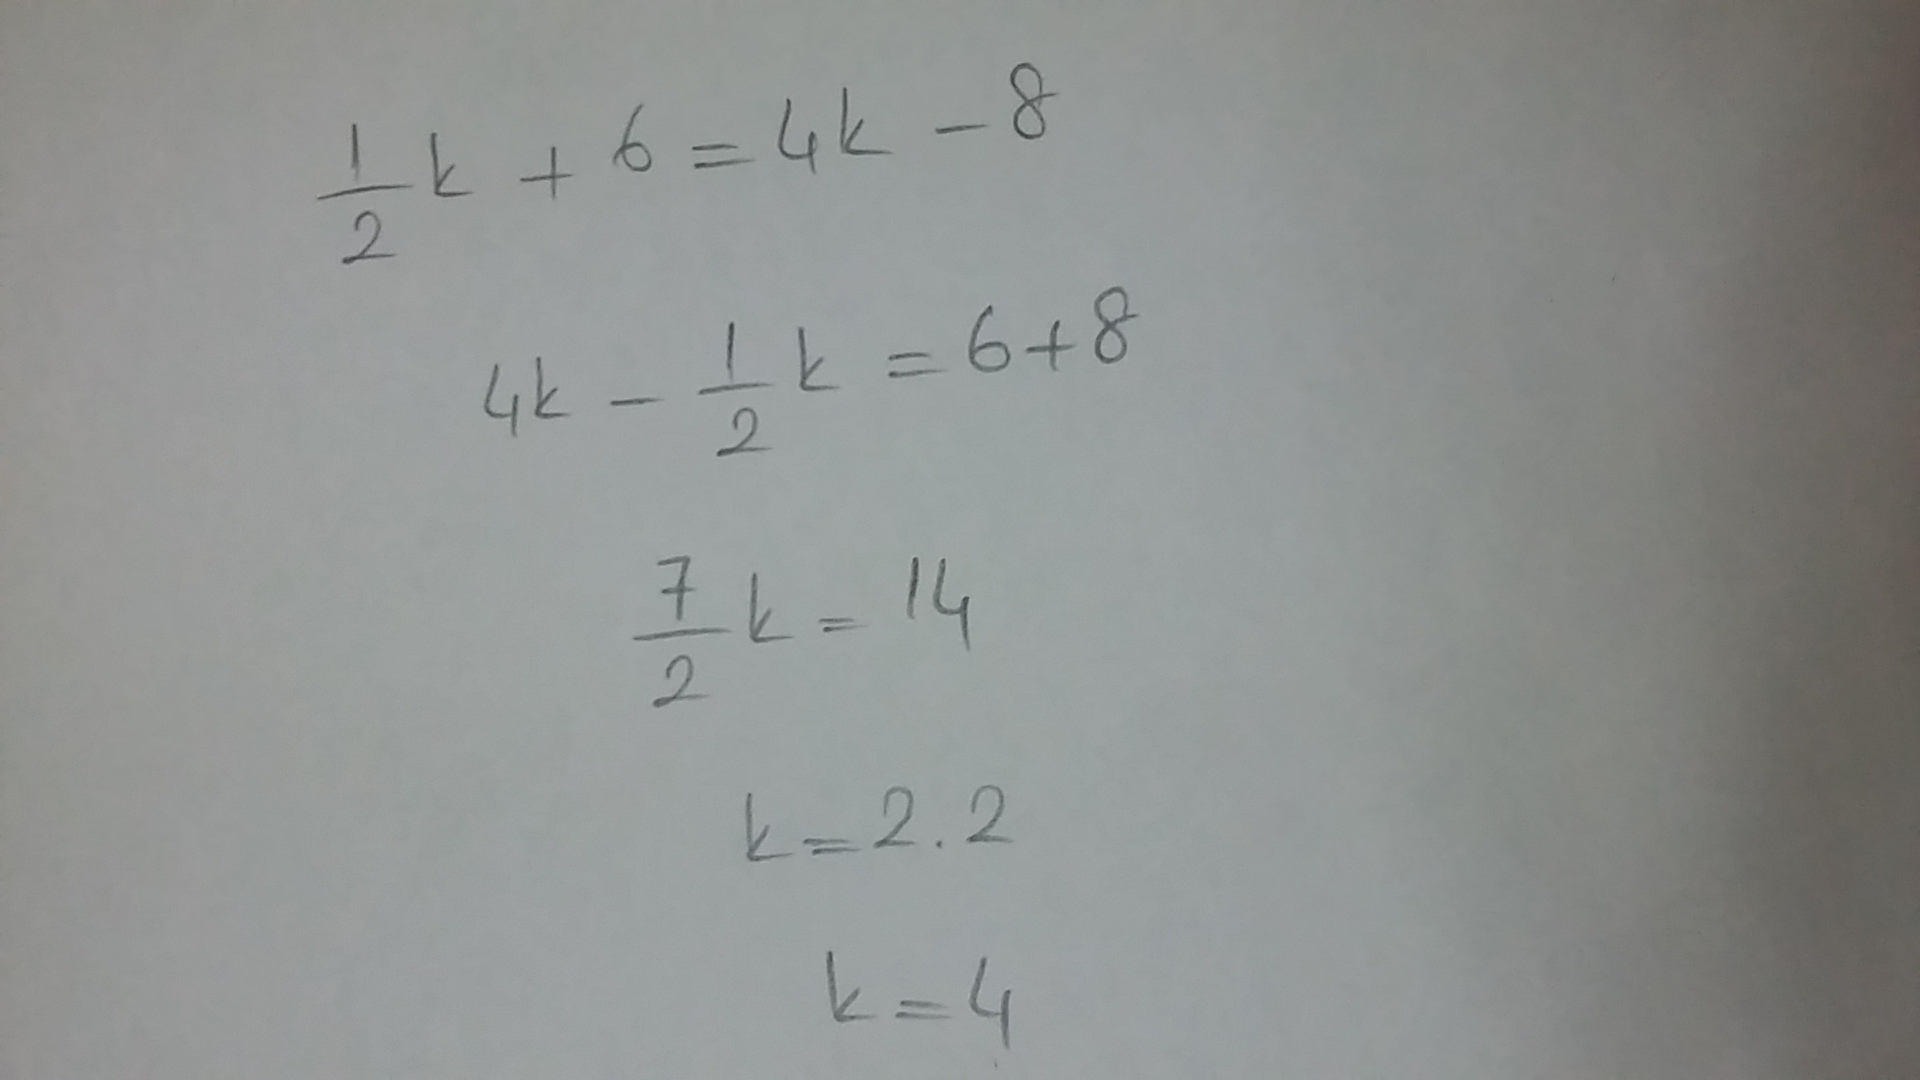 1/2 k + 6 = 4k - 8
4k - 1/2 k = 6+8
7/2 k = 14
k = 2.2
k = 4